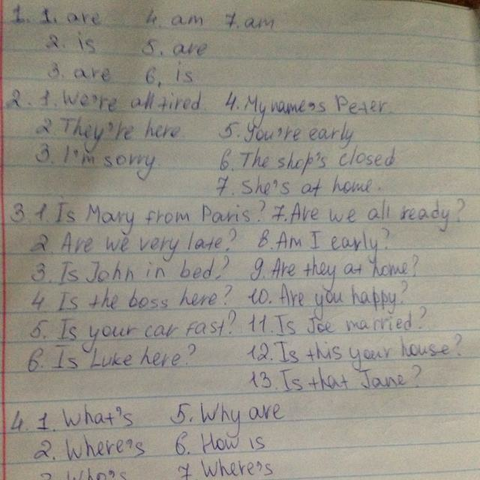 1. 1. are 4. am 7. am
2. is 5. are
3. are 6. is
2. 1. We're all tired 4. My name's Peter.
2. They're here 5. You're early
3. I'm sorry 6. The shop's closed
7. She's at home.
3. 1. Is Mary from Paris? 7. Are we all ready?
2. Are we very late? 8. Am I early?
3. Is John in bed? 9. Are they at home?
4 Is the boss here? 10. Are you happy?
5. Is your car fast? 11. Is Joe married?
6. Is Luke here? 12. Is this your house?
13. Is that Jane?
4. 1. What's 5. Why are
2. Where's 6. How is
3. Who's 7 Where's